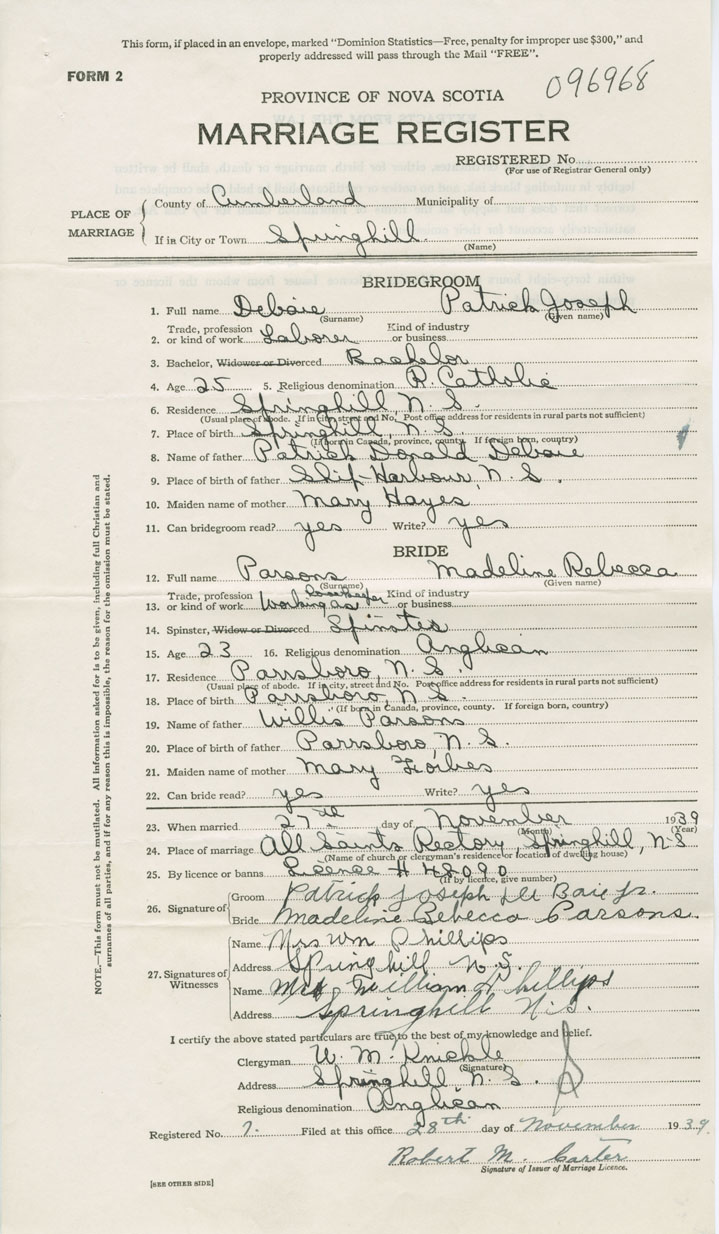 This form, if placed in an envelope, marked "Dominion Statistics—Free, penalty for improper use $300," and
properly addressed will pass through the Mail "FREE".
FORM 2
096968
PROVINCE OF NOVA SCOTIA
MARRIAGE REGISTER
REGISTERED No.
(For use of Registrar General only)
PLACE OF MARRIAGE
County of Cumberland Municipality of
If in City or Town Springhill.
(Name)
BRIDEGROOM
1. Full name Debaie Patrick Joseph
(Surname) (Given name)
2. Trade, profession or kind of work Laborer Kind of industry or business
3. Bachelor, Widower or Divorced Bachelor
4. Age 25 5. Religious denomination R. Catholic
6. Residence Springhill, N. S.
(Usual place of abode. If in city, street and No. Post office address for residents in rural parts not sufficient)
7. Place of birth Springhill, N. S.
(If born in Canada, province, county. If foreign born, country)
8. Name of father Patrick Donald Debaie
9. Place of birth of father Ship Harbour, N. S.
10. Maiden name of mother Mary Hayes
11. Can bridegroom read? yes Write? yes
BRIDE
12. Full name Parsons Madeline Rebecca
(Surname) (Given name)
13. Trade, profession or kind of work Working as housekeeper Kind of industry or business
14. Spinster, Widow or Divorced Spinster
15. Age 23 16. Religious denomination Anglican
17. Residence Parrsboro, N. S.
(Usual place of abode. If in city, street and No. Post office address for residents in rural parts not sufficient)
18. Place of birth Parrsboro, N. S.
(If born in Canada, province, county. If foreign born, country)
19. Name of father Willis Parsons
20. Place of birth of father Parrsboro, N. S.
21. Maiden name of mother Mary Forbes
22. Can bride read? yes Write? yes
23. When married 27th day of November 1939
(Month) (Year)
24. Place of marriage All Saints Rectory, Springhill, N S
(Name of church or clergyman's residence or location of dwelling house)
25. By licence or banns Licence # 48090
(If by licence, give number)
26. Signature of
Groom Patrick Joseph De Baie Jr.
Bride Madeline Rebecca Parsons.
27. Signatures of Witnesses
Name Mrs Wm Phillips
Address Springhill N. S.
Name William Phillips
Address Springhill N.S.
I certify the above stated particulars are true to the best of my knowledge and belief.
Clergyman W. M. Knickle
(Signature)
Address Springhill, N. S.
Religious denomination Anglican
Registered No. 7. Filed at this office 28th day of November 1939.
Robert M. Carter
Signature of Issuer of Marriage Licence.
[SEE OTHER SIDE]
NOTE.—This form must not be mutilated. All information asked for is to be given, including full Christian and
surnames of all parties, and if for any reason this is impossible, the reason for the omission must be stated.